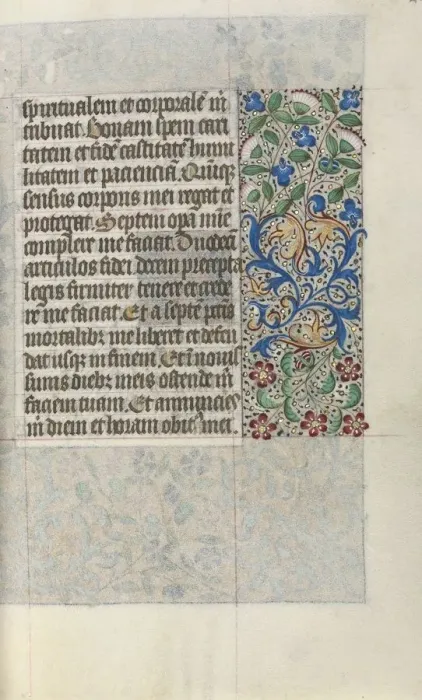 spiritualem et corporalē m̄
tribuat. Bonam spem cari
tatem et fidē castitatē humi
litatem et pacienciā. Quīqȝ
sensus corporis mei regat et
protegat. Septem opa mīe
complere me faciat. Duodeci
articulos fidei decem precepta
legis firmiter tenere et crede
re me faciat. Et a septē pctis
mortalibȝ me liberet et defen
dat usqȝ in finem. Et ī novis
simis diebȝ meis ostende m̄
faciem tuam. Et annuncies
m̄ diem et horam obit9 mei.